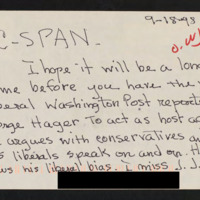 9-18-98
C-SPAN
I hope it will be a long
me before you have the
eral Washington Post reporte
orge Hager To act as host ag
argues with conservatives an
s liberals speak on and on. H
ws his liberal bias. I miss J.J.